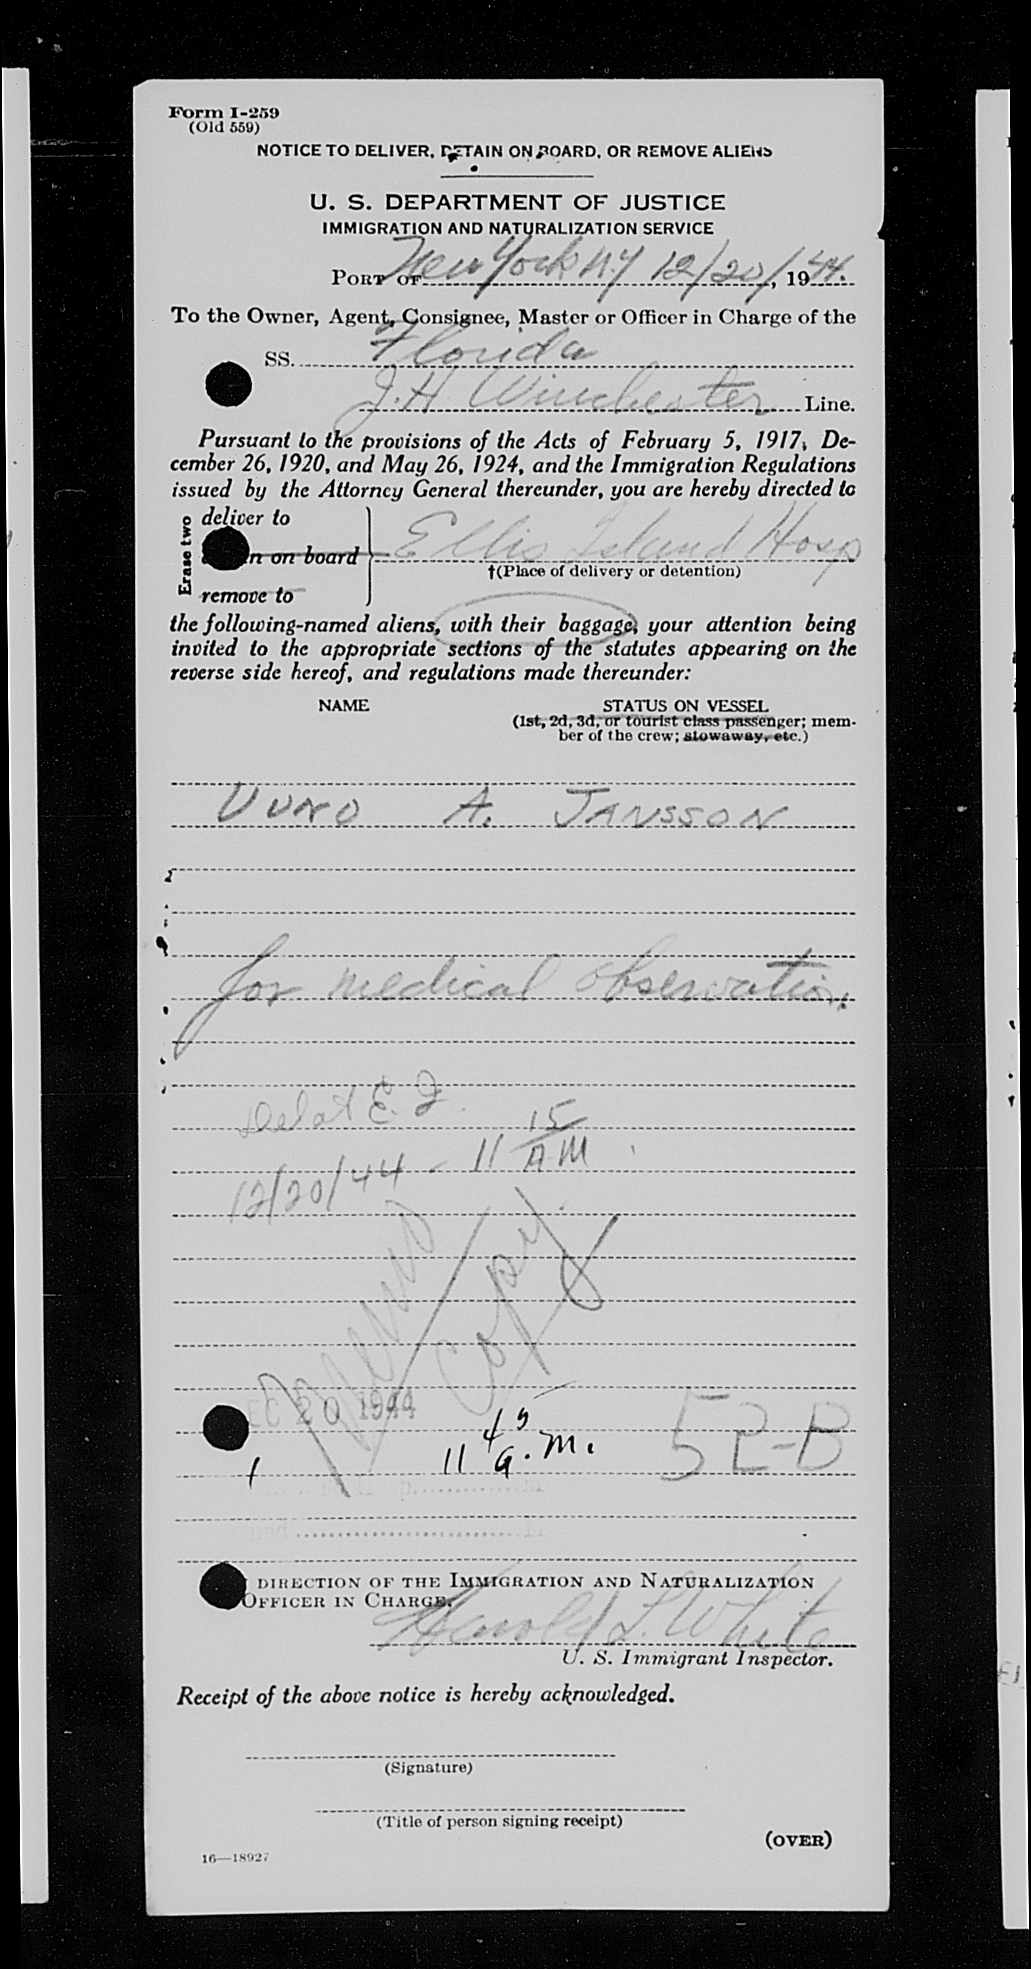 Form I-259
(Old 559)
NOTICE TO DELIVER, DETAIN ON BOARD, OR REMOVE ALIENS
U. S. DEPARTMENT OF JUSTICE
IMMIGRATION AND NATURALIZATION SERVICE
PORT OF New York N.Y 12/20/, 1944.
To the Owner, Agent, Consignee, Master or Officer in Charge of the
SS. Florida
J.H Winchester Line.
Pursuant to the provisions of the Acts of February 5, 1917, De-
cember 26, 1920, and May 26, 1924, and the Immigration Regulations
issued by the Attorney General thereunder, you are hereby directed to
Erase two
deliver to
n on board Ellis Island Hosp
†(Place of delivery or detention)
remove to
the following-named aliens, with their baggage, your attention being
invited to the appropriate sections of the statutes appearing on the
reverse side hereof, and regulations made thereunder:
NAME STATUS ON VESSEL
(1st, 2d, 3d, or tourist class passenger; mem-
ber of the crew; stowaway, etc.)
UUNO A. JANSSON
for medical observation.
Del at E. I.
12/20/44 - 11 15 AM
copy
EC 20 1944
11 45 a.m. 52-B
1
DIRECTION OF THE IMMIGRATION AND NATURALIZATION
OFFICER IN CHARGE.
Harold L. White
U. S. Immigrant Inspector.
Receipt of the above notice is hereby acknowledged.
(Signature)
(Title of person signing receipt)
(OVER)
16—18927